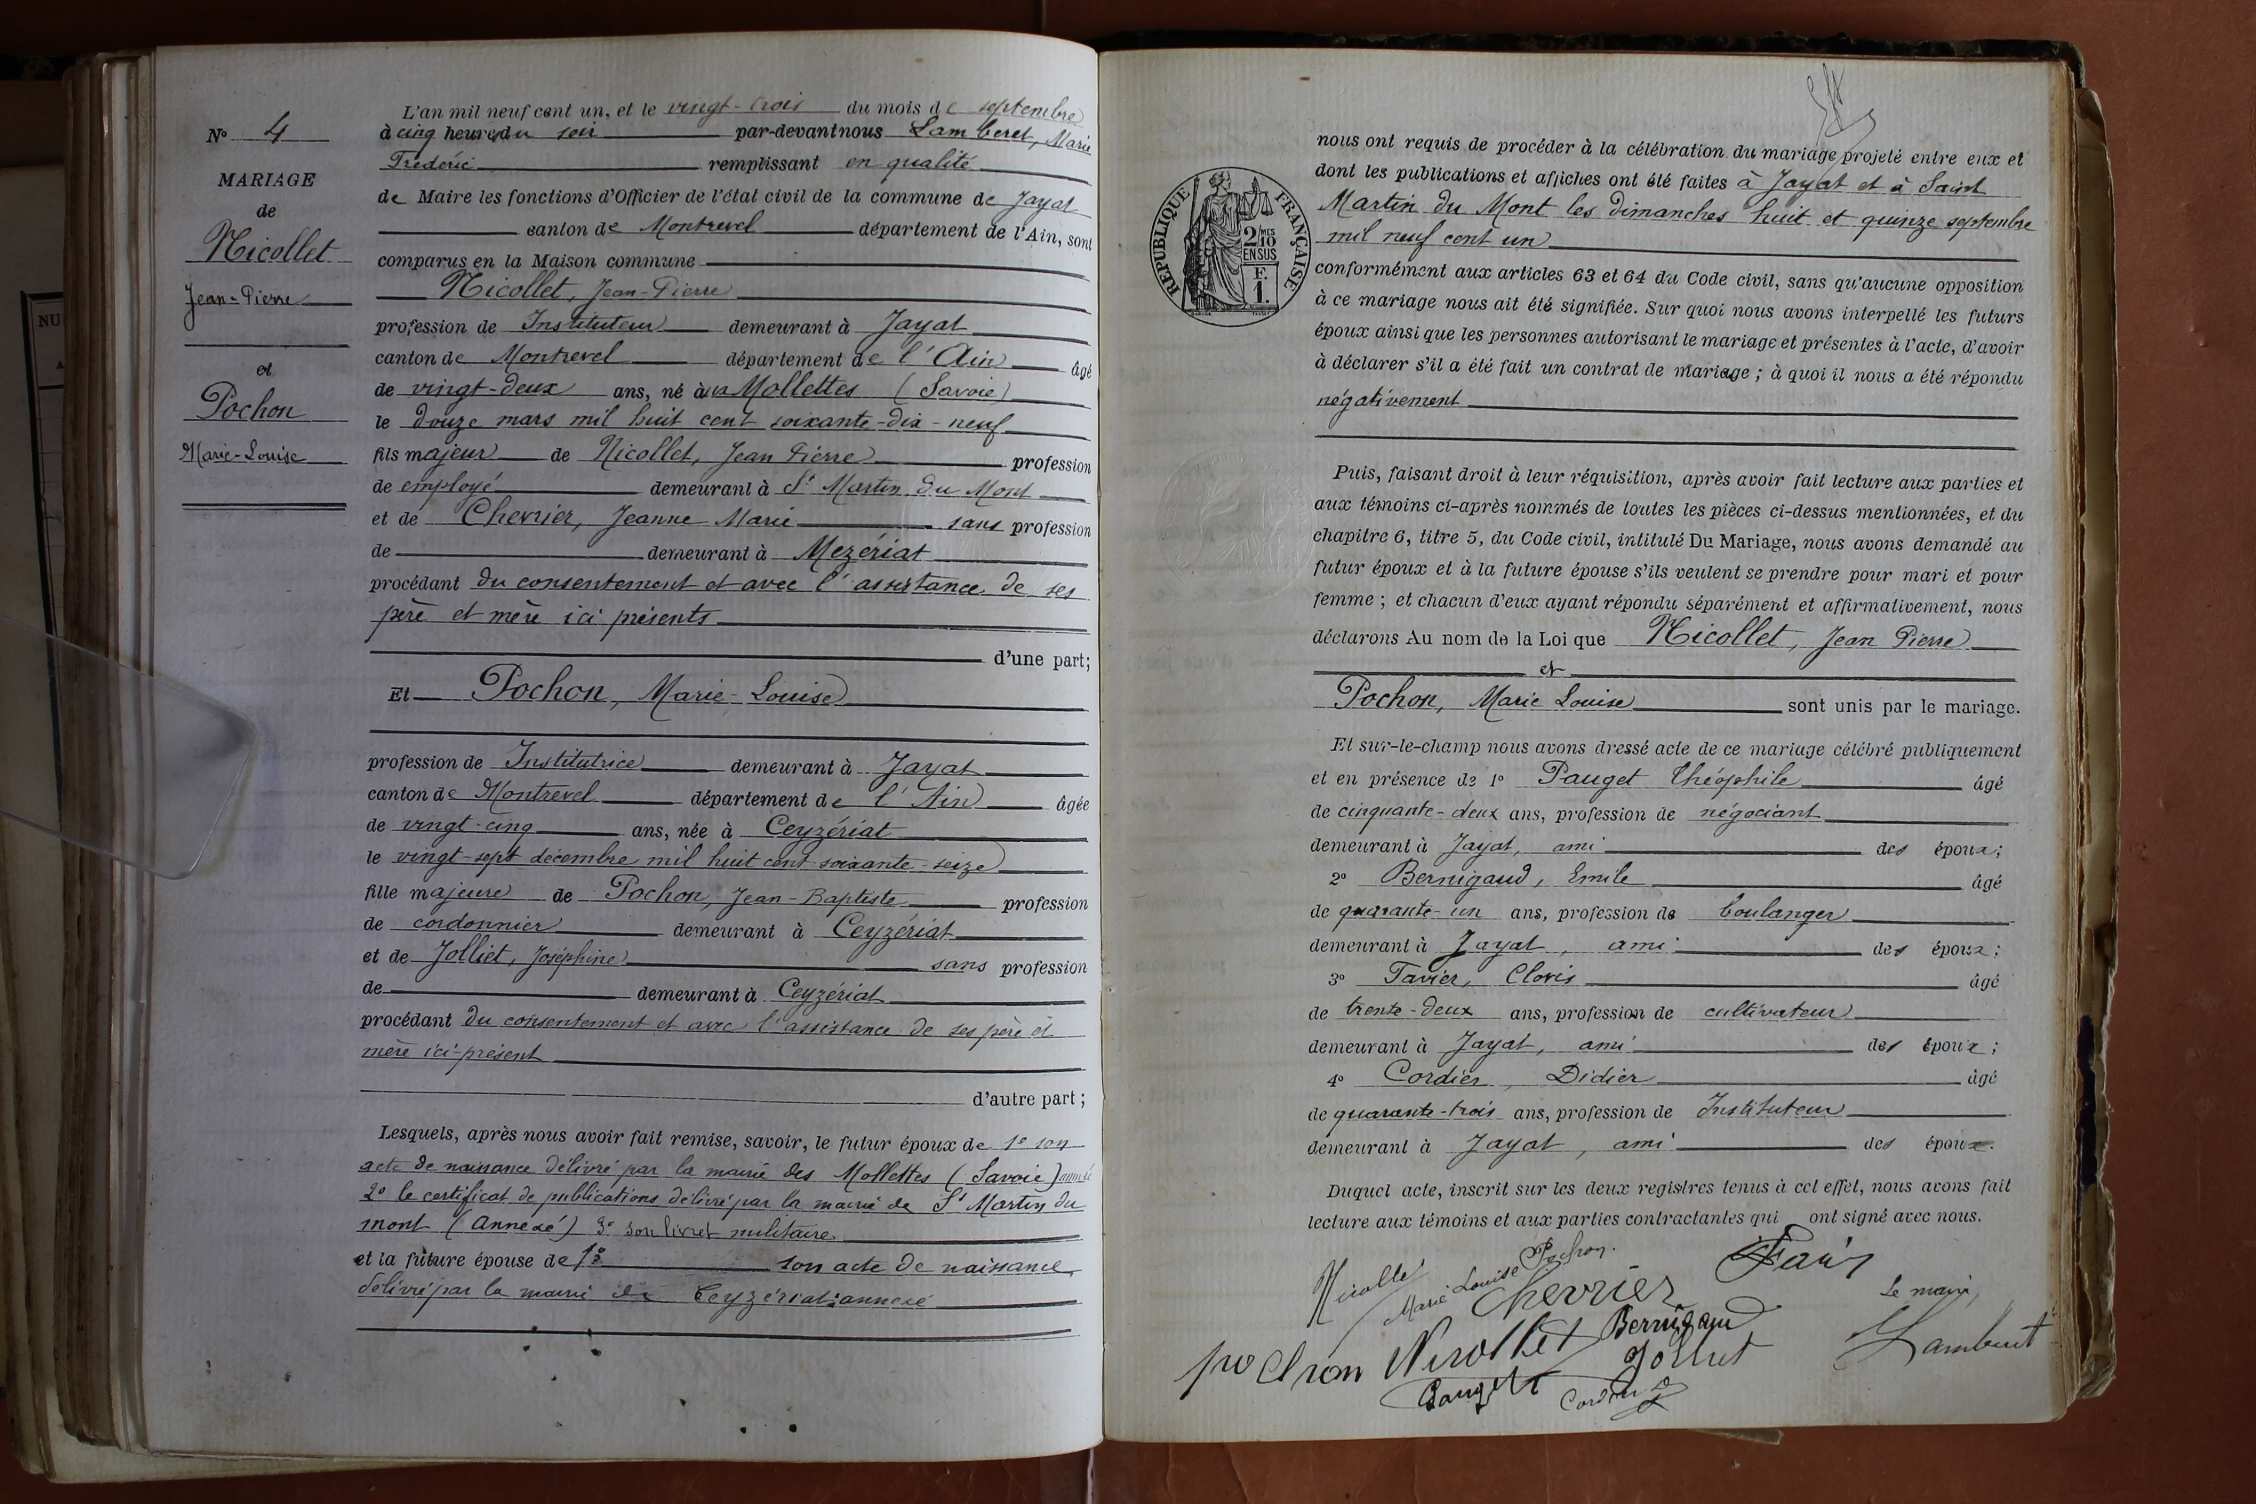 NU
N° 4
MARIAGE
de
Nicollet
Jean-Pierre
et
Pochon
Marie-Louise
L'an mil neuf cent un, et le vingt-trois du mois de septembre
à cinq heures du soir par-devant nous Lamberet, Marie
Frédéric remplissant en qualité
de Maire les fonctions d'Officier de l'état civil de la commune de Jayat
canton de Montrevel département de l'Ain, sont
comparus en la Maison commune
Nicollet, Jean-Pierre
profession de Instituteur demeurant à Jayat
canton de Montrevel département de l'Ain âgé
de vingt-deux ans, né aux Mollettes (Savoie)
le douze mars mil huit cent soixante-dix-neuf
fils majeur de Nicollet, Jean Pierre profession
de employé demeurant à St Martin du Mont
et de Chevrier, Jeanne Marie sans profession
de demeurant à Mezériat
procédant du consentement et avec l'assistance de ses
père et mère ici présents
d'une part;
Et Pochon, Marie-Louise
profession de Institutrice demeurant à Jayat
canton de Montrevel département de l'Ain âgée
de vingt-cinq ans, née à Ceyzériat
le vingt-sept décembre mil huit cent soixante-seize
fille majeure de Pochon, Jean-Baptiste profession
de cordonnier demeurant à Ceyzériat
et de Jolliet, Joséphine sans profession
de demeurant à Ceyzériat
procédant du consentement et avec l'assistance de ses père et
mère ici-présent
d'autre part;
Lesquels, après nous avoir fait remise, savoir, le futur époux de 1° son
acte de naissance délivré par la mairie des Mollettes (Savoie)
2° le certificat de publications délivré par la mairie de St Martin du
mont (annexé) 3° son livret militaire
et la future épouse de 1° son acte de naissance
délivré par la mairie de Ceyzériat annexé
RÉPUBLIQUE FRANÇAISE
2/10 MES
EN SUS
F.
1.
nous ont requis de procéder à la célébration du mariage projeté entre eux et
dont les publications et affiches ont été faites à Jayat et à Saint
Martin du Mont les dimanches huit et quinze septembre
mil neuf cent un
conformément aux articles 63 et 64 du Code civil, sans qu'aucune opposition
à ce mariage nous ait été signifiée. Sur quoi nous avons interpellé les futurs
époux ainsi que les personnes autorisant le mariage et présentes à l'acte, d'avoir
à déclarer s'il a été fait un contrat de mariage; à quoi il nous a été répondu
négativement
Puis, faisant droit à leur réquisition, après avoir fait lecture aux parties et
aux témoins ci-après nommés de toutes les pièces ci-dessus mentionnées, et du
chapitre 6, titre 5, du Code civil, intitulé Du Mariage, nous avons demandé au
futur époux et à la future épouse s'ils veulent se prendre pour mari et pour
femme; et chacun d'eux ayant répondu séparément et affirmativement, nous
déclarons Au nom de la Loi que Nicollet, Jean Pierre
et
Pochon, Marie Louise sont unis par le mariage.
Et sur-le-champ nous avons dressé acte de ce mariage célébré publiquement
et en présence de 1° Pauget Théophile âgé
de cinquante-deux ans, profession de négociant
demeurant à Jayat, ami des époux;
2° Bernigaud, Emile âgé
de quarante-un ans, profession de boulanger
demeurant à Jayat, ami des époux;
3° Favier, Clovis âgé
de trente-deux ans, profession de cultivateur
demeurant à Jayat, ami des époux;
4° Cordier, Didier âgé
de quarante-trois ans, profession de Instituteur
demeurant à Jayat, ami des époux.
Duquel acte, inscrit sur les deux registres tenus à cet effet, nous avons fait
lecture aux témoins et aux parties contractantes qui ont signé avec nous.
Nicollet Marie Louise Pochon. Chevrier
Le maire,
Bernigaud
pochon Nicollet Lamberet
Pauget Cordier